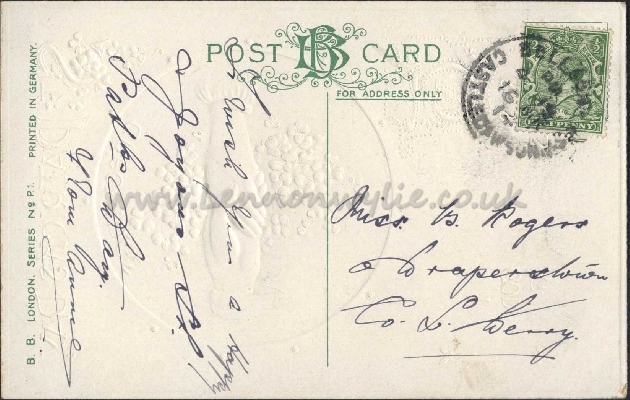 POST CARD
B B
FOR ADDRESS ONLY
I Wish You a Happy
& Joyous St.
Patks Day.
from Annie
Miss B. Rogers
Draperstown
Co. L. Derry.
CASTLEDAWSON
PENNY
B. B. LONDON. SERIES No P.1. PRINTED IN GERMANY.
www.bennonwylie.co.uk